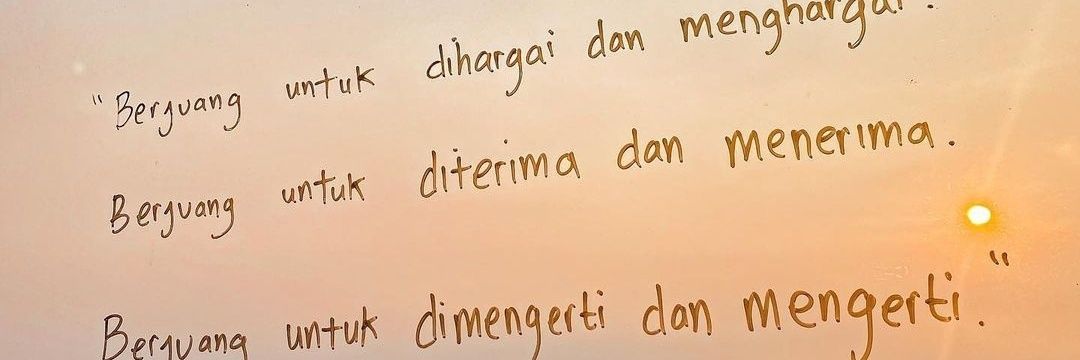 "Berjuang untuk dihargai dan menghargai.
Berjuang untuk diterima dan menerima.
Berjuang untuk dimengerti dan mengerti."